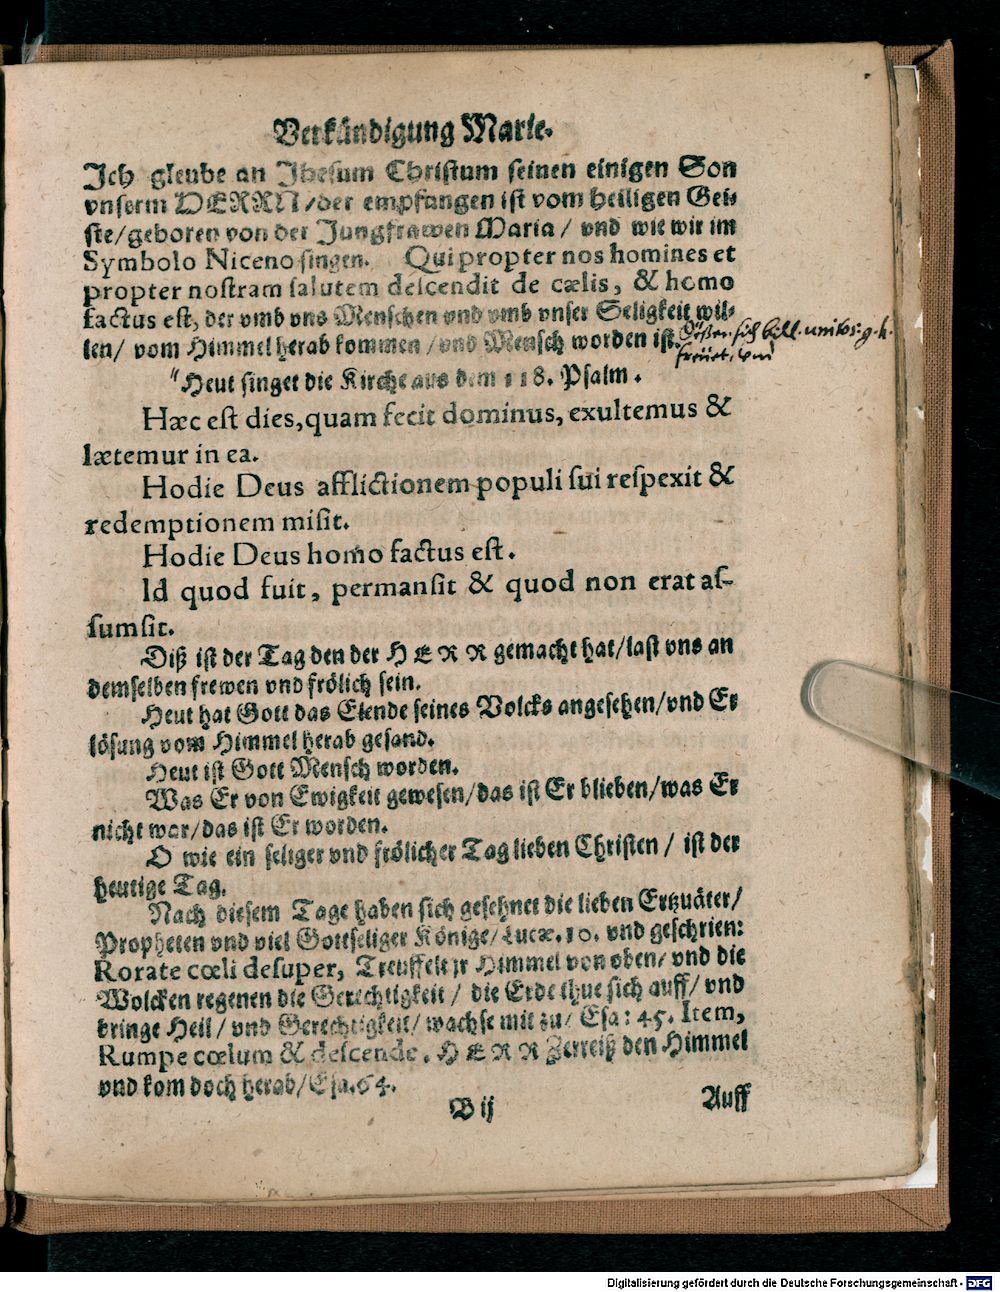 Verkündigung Marie.
Ich gleube an Jhesum Christum seinen einigen Son
vnserm HERRN/der empfangen ist vom heiligen Gei-
ste/geboren von der Jungfrawen Maria/ vnd wie wir im
Symbolo Niceno singen. Qui propter nos homines et
propter nostram salutem descendit de cælis, & homo
factus est, der vmb vns Menschen vnd vmb vnser Seligkeit wil-
len/ vom Himmel herab kommen/vnd Mensch worden ist.
freüet,
Heut singet die Kirche aus dem 118. Psalm.
Hæc est dies, quam fecit dominus, exultemus &
lætemur in ea.
Hodie Deus afflictionem populi sui respexit &
redemptionem misit.
Hodie Deus homo factus est.
Id quod fuit, permansit & quod non erat as-
sumsit.
Diß ist der Tag den der HERR gemacht hat/last vns an
demselben frewen vnd frölich sein.
Heut hat Gott das Elende seines Volcks angesehen/vnd Er
lösung vom Himmel herab gesand.
Heut ist Gott Mensch worden.
Was Er von Ewigkeit gewesen/das ist Er blieben/was Er
nicht war/das ist Er worden.
O wie ein seliger vnd frölicher Tag lieben Christen/ ist der
heutige Tag.
Nach diesem Tage haben sich gesehnet die lieben Ertzuäter/
Propheten vnd viel Gottseliger Könige/Lucæ.10. vnd geschrien:
Rorate cœli desuper, Treuffelt jr Himmel von oben/ vnd die
Wolcken regenen die Gerechtigkeit/ die Erde thue sich auff/ vnd
bringe Heil/ vnd Gerechtigkeit/ wachse mit zu/ Esa: 45. Item,
Rumpe cœlum & descende. HERR Zerreiß den Himmel
vnd kom doch herab/Esa.64.
B ij
Auff
Digitalisierung gefördert durch die Deutsche Forschungsgemeinschaft - DFG